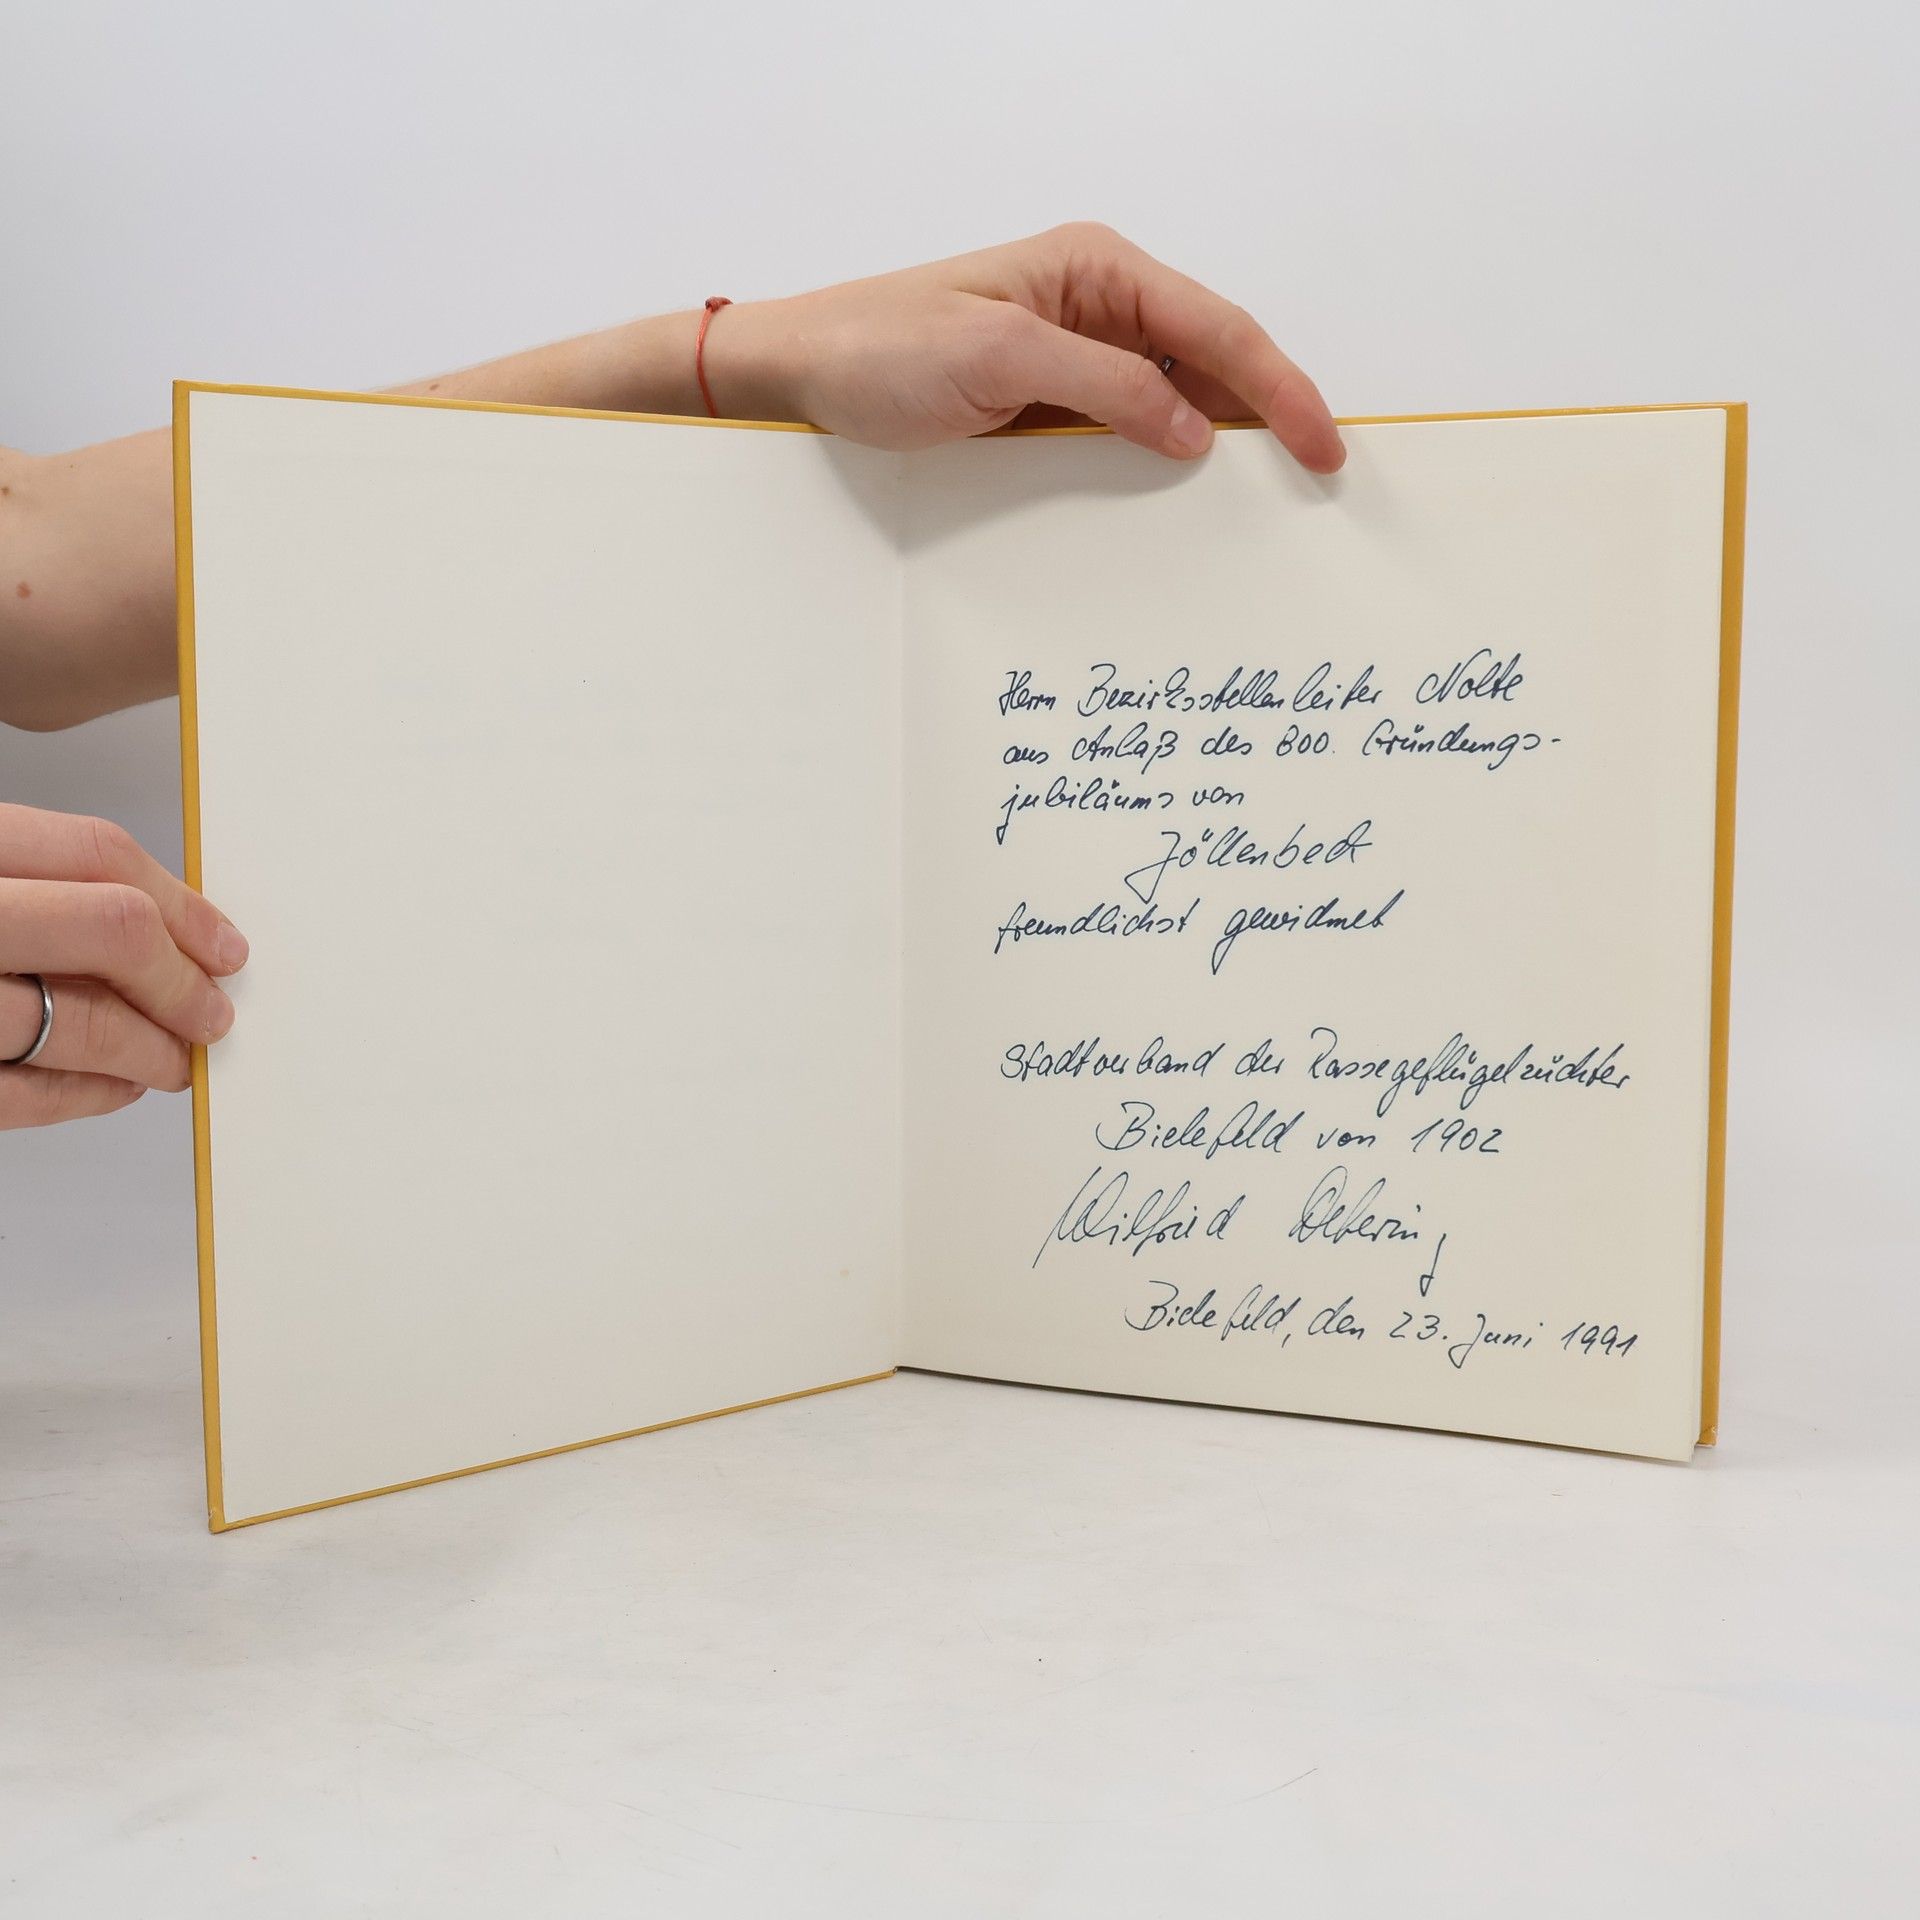 Herrn Bezirksstellenleiter Nolte
aus Anlaß des 800. Gründungs-
jubiläums von
Jöllenbeck
freundlichst gewidmet
Stadtverband der Rassegeflügelzüchter
Bielefeld von 1902
Wilfried
Bielefeld, den 23. Juni 1991